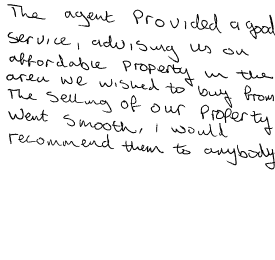 The agent Provided a good
service, advising us on
affordable property in the
area we wished to buy from
The selling of our Property
went smooth, i would
recommend them to anybody